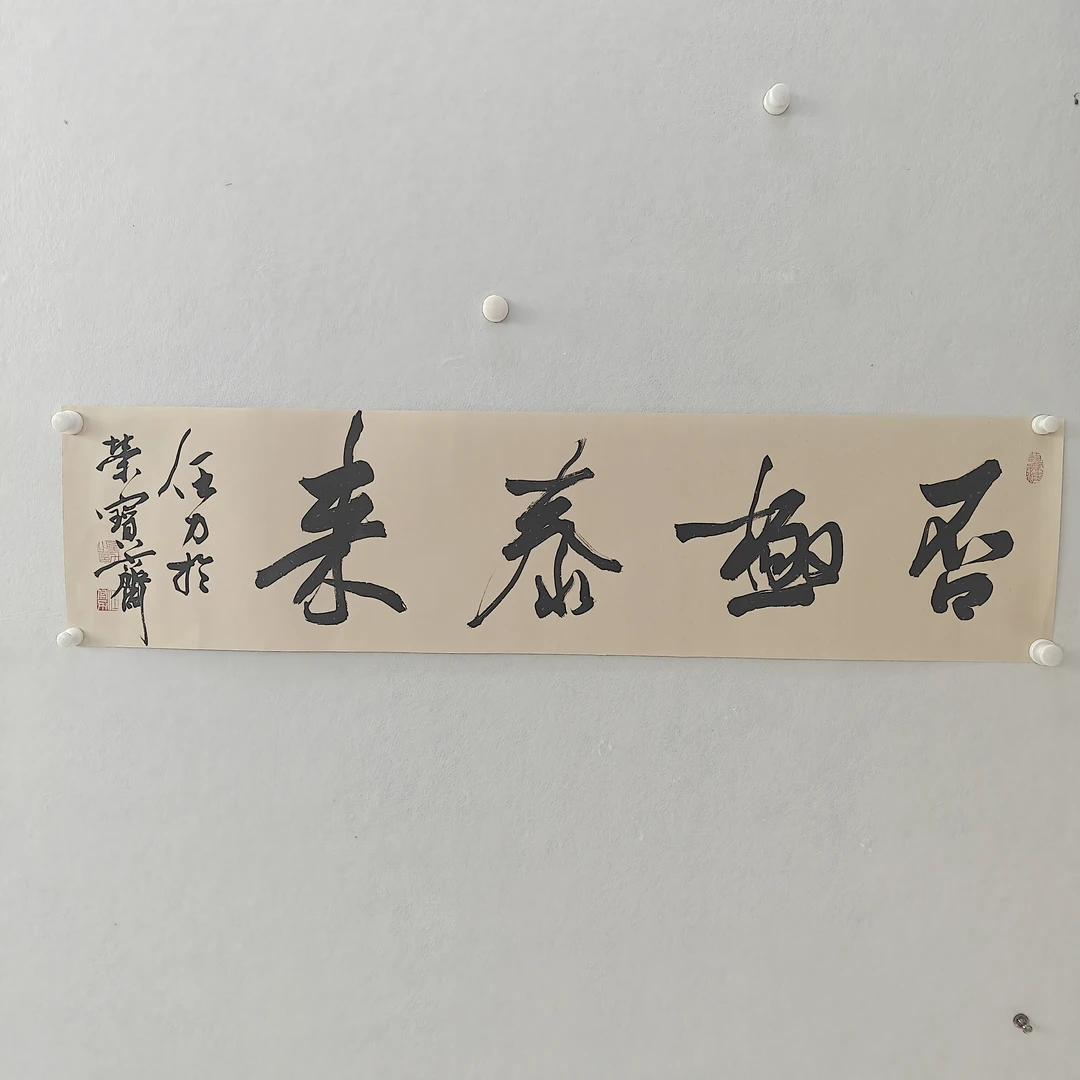 否極泰来
任力於
榮寶齋